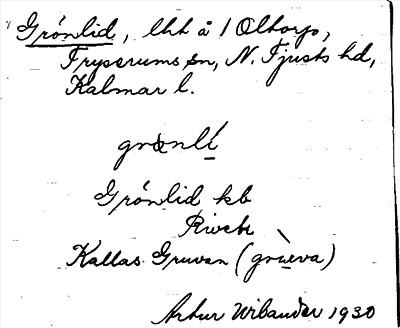 Grönlid, lht å 1 Oltorp,
Fryserums sn, N. Tjusts hd,
Kalmar l.
grønlí
Grönlid kb
Kallas Gruvan (grùeva)
Artur Wilander 1930